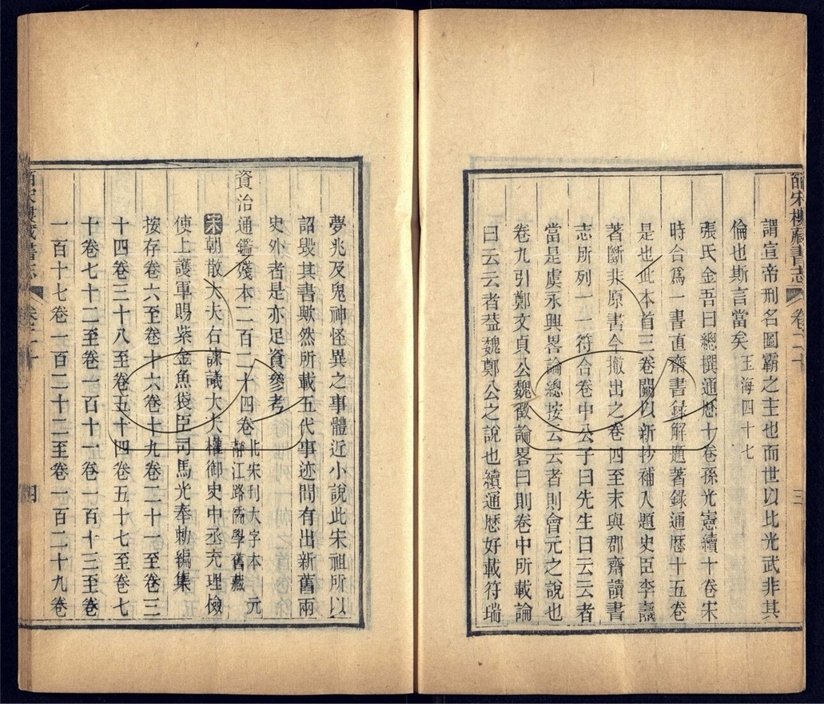 謂宣帝刑名圖霸之主也而世以比光武非其
倫也斯言當矣玉海四十七
張氏金吾曰總撰通歷十卷孫光憲續十卷宋
時合爲一書直齋書錄解題著錄通歷十五卷
是也此本首三卷闕以新抄補入題史臣李燾
著斷非原書今撤出之卷四至末與郡齋讀書
志所列一一符合卷中公子曰先生曰云云者
當是虞永興畧論總按云云者則會元之說也
卷九引鄭文貞公魏徵論畧曰則卷中所載論
曰云云者葢魏鄭公之說也續通歷好載符瑞
皕宋樓藏書志 卷二十 三
夢兆及鬼神怪異之事體近小說此宋祖所以
詔毀其書歟然所載五代事迹間有出新舊兩
史外者是亦足資參考
資治通鑑殘本二百二十四卷北宋刊大字本 元靜江路儒學舊藏
宋朝散大夫右諫議大夫權御史中丞充理檢
使上護軍賜紫金魚袋臣司馬光奉勑編集
按存卷六至卷十六卷十九卷二十一至卷三
十四卷三十八至卷五十四卷五十七至卷七
十卷七十二至卷一百十一卷一百十三至卷
一百十七卷一百二十二至卷一百二十九卷
皕宋樓藏書志 卷二十 四